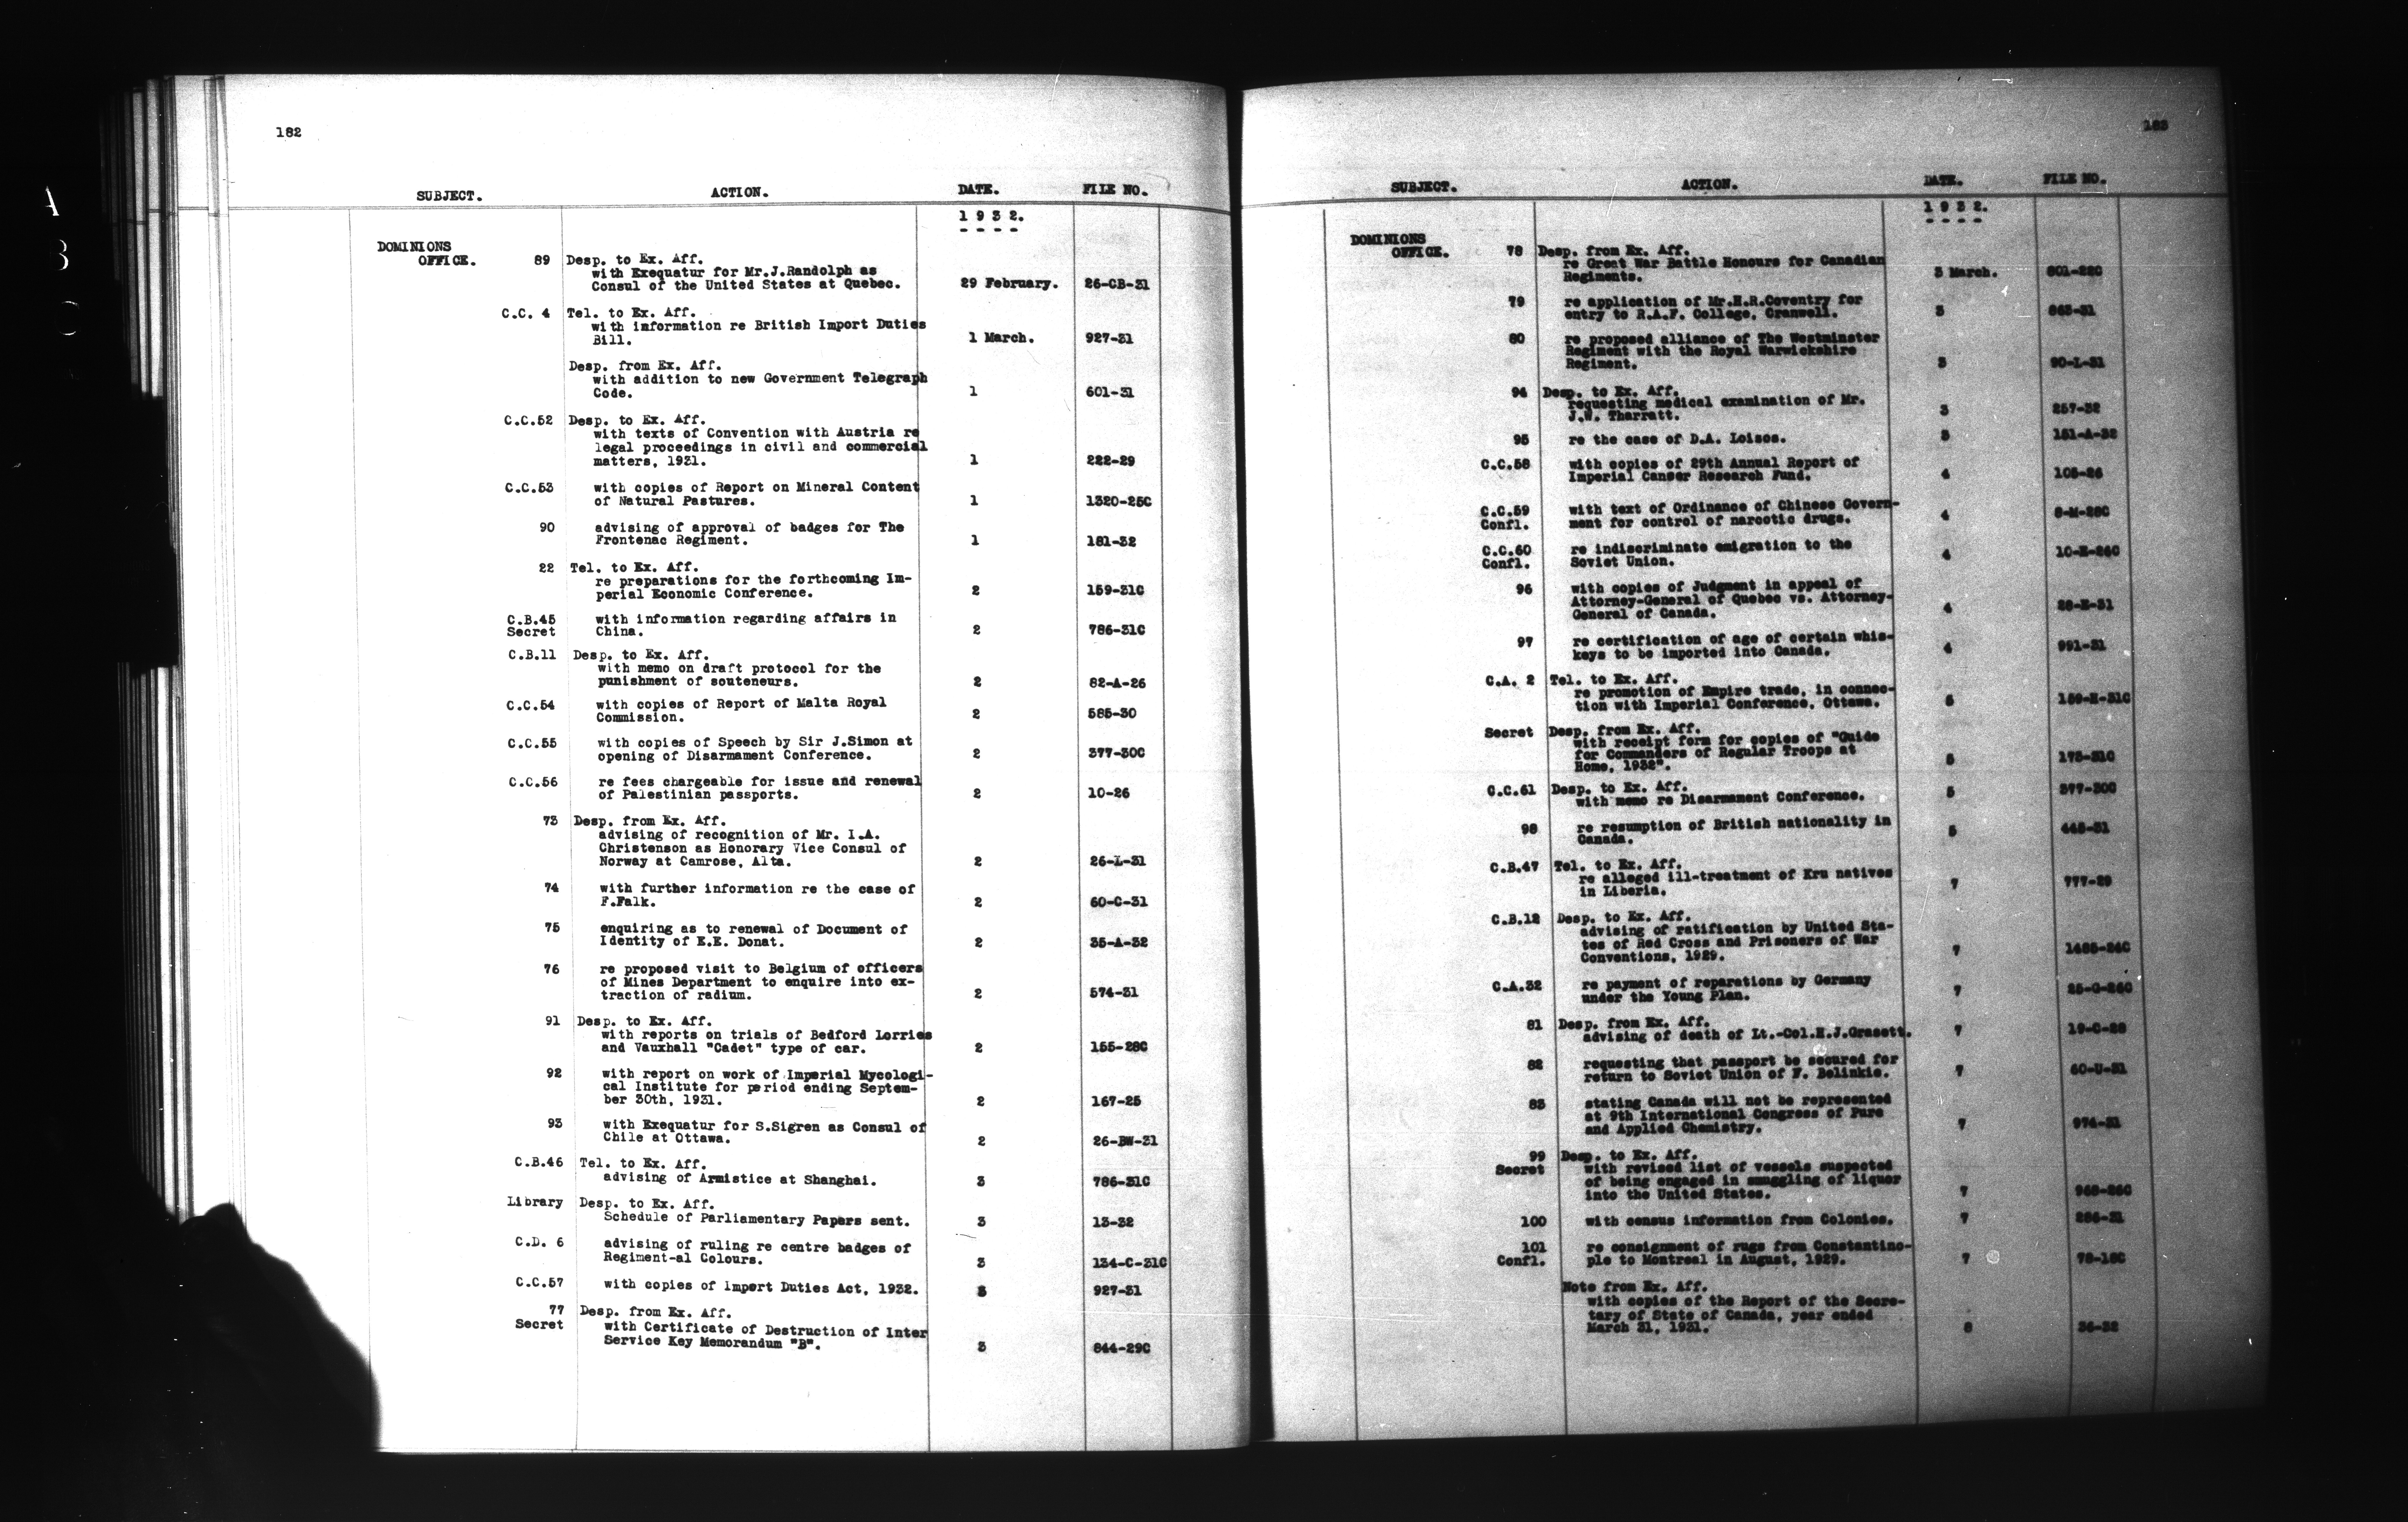 182
SUBJECT. ACTION. DATE. FILE NO.
1 9 3 2.
DOMINIONS
OFFICE. 89 Desp. to Ex. Aff.
with Exequatur for Mr.J.Randolph as
Consul of the United States at Quebec. 29 February. 26-CB-31
C.C. 4 Tel. to Ex. Aff.
with information re British Import Duties
Bill. 1 March. 927-31
Desp. from Ex. Aff.
with addition to new Government Telegraph
Code. 1 601-31
C.C.52 Desp. to Ex. Aff.
with texts of Convention with Austria re
legal proceedings in civil and commercial
matters, 1931. 1 222-29
C.C.53 with copies of Report on Mineral Content
of Natural Pastures. 1 1320-25C
90 advising of approval of badges for The
Frontenac Regiment. 1 181-32
22 Tel. to Ex. Aff.
re preparations for the forthcoming Im-
perial Economic Conference. 2 159-31C
C.B.45 with information regarding affairs in
Secret China. 2 786-31C
C.B.11 Desp. to Ex. Aff.
with memo on draft protocol for the
punishment of souteneurs. 2 82-A-26
C.C.54 with copies of Report of Malta Royal
Commission. 2 585-30
C.C.55 with copies of Speech by Sir J.Simon at
opening of Disarmament Conference. 2 377-30C
C.C.56 re fees chargeable for issue and renewal
of Palestinian passports. 2 10-26
73 Desp. from Ex. Aff.
advising of recognition of Mr. I.A.
Christenson as Honorary Vice Consul of
Norway at Camrose, Alta. 2 26-L-31
74 with further information re the case of
F.Falk. 2 60-C-31
75 enquiring as to renewal of Document of
Identity of E.E. Donat. 2 35-A-32
76 re proposed visit to Belgium of officers
of Mines Department to enquire into ex-
traction of radium. 2 574-31
91 Desp. to Ex. Aff.
with reports on trials of Bedford Lorries
and Vauxhall "Cadet" type of car. 2 155-28C
92 with report on work of Imperial Mycologi-
cal Institute for period ending Septem-
ber 30th, 1931. 2 167-25
93 with Exequatur for S.Sigren as Consul of
Chile at Ottawa. 2 26-BW-31
C.B.46 Tel. to Ex. Aff.
advising of Armistice at Shanghai. 3 786-31C
Library Desp. to Ex. Aff.
Schedule of Parliamentary Papers sent. 3 13-32
C.D. 6 advising of ruling re centre badges of
Regiment-al Colours. 3 134-C-31C
C.C.57 with copies of Import Duties Act, 1932. 3 927-31
77 Desp. from Ex. Aff.
Secret with Certificate of Destruction of Inter
Service Key Memorandum "B". 3 844-29C
183
SUBJECT. ACTION. DATE. FILE NO.
1 9 3 2.
DOMINIONS
OFFICE. 78 Desp. from Ex. Aff.
re Great War Battle Honours for Canadian
Regiments. 3 March. 601-22C
79 re application of Mr.H.R.Coventry for
entry to R.A.F. College, Cranwell. 3 863-31
80 re proposed alliance of The Westminster
Regiment with the Royal Warwickshire
Regiment. 3 90-L-31
94 Desp. to Ex. Aff.
requesting medical examination of Mr.
J.W. Tharratt. 3 257-32
95 re the case of D.A. Loisos. 3 151-A-32
C.C.58 with copies of 29th Annual Report of
Imperial Cancer Research Fund. 4 105-26
C.C.59 with text of Ordinance of Chinese Govern-
Confl. ment for control of narcotic drugs. 4 8-M-28C
C.C.60 re indiscriminate emigration to the
Confl. Soviet Union. 4 10-E-24C
96 with copies of Judgment in appeal of
Attorney-General of Quebec vs. Attorney-
General of Canada. 4 28-E-31
97 re certification of age of certain whis-
keys to be imported into Canada. 4 991-31
C.A. 2 Tel. to Ex. Aff.
re promotion of Empire trade, in connec-
tion with Imperial Conference, Ottawa. 5 159-E-31C
Secret Desp. from Ex. Aff.
with receipt form for copies of "Guide
for Commanders of Regular Troops at
Home, 1932". 5 173-31C
C.C.61 Desp. to Ex. Aff.
with memo re Disarmament Conference. 5 377-30C
98 re resumption of British nationality in
Canada. 5 445-31
C.B.47 Tel. to Ex. Aff.
re alleged ill-treatment of Kru natives
in Liberia. 7 777-29
C.B.12 Desp. to Ex. Aff.
advising of ratification by United Sta-
tes of Red Cross and Prisoners of War
Conventions, 1929. 7 1485-24C
C.A.32 re payment of reparations by Germany
under the Young Plan. 7 25-G-26C
81 Desp. from Ex. Aff.
advising of death of Lt.-Col.H.J.Grasett. 7 19-C-28
82 requesting that passport be secured for
return to Soviet Union of F. Belinkie. 7 60-U-31
83 stating Canada will not be represented
at 9th International Congress of Pure
and Applied Chemistry. 7 974-31
99 Desp. to Ex. Aff.
Secret with revised list of vessels suspected
of being engaged in smuggling of liquor
into the United States. 7
100 with census information from Colonies. 7 286-31
101 re consignment of rugs from Constantino-
Confl. ple to Montreal in August, 1929. 7
Note from Ex. Aff.
with copies of the Report of the Secre-
tary of State of Canada, year ended
March 31, 1931. 8 36-32